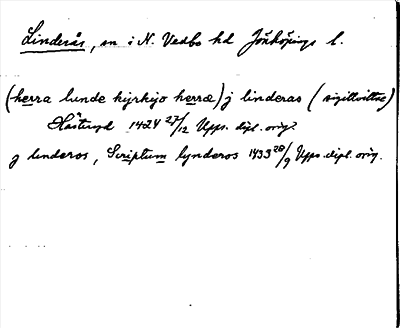 Linderås, sn i N. Vedbo hd Jönköpings l.
(herra lunde kyrkijo herræ) j linderas (sigillvittne)
1424 27/12 Upps. dipl. orig.
j linderos, Scriptum lynderos 1433 28/9 Upps. dipl. orig.